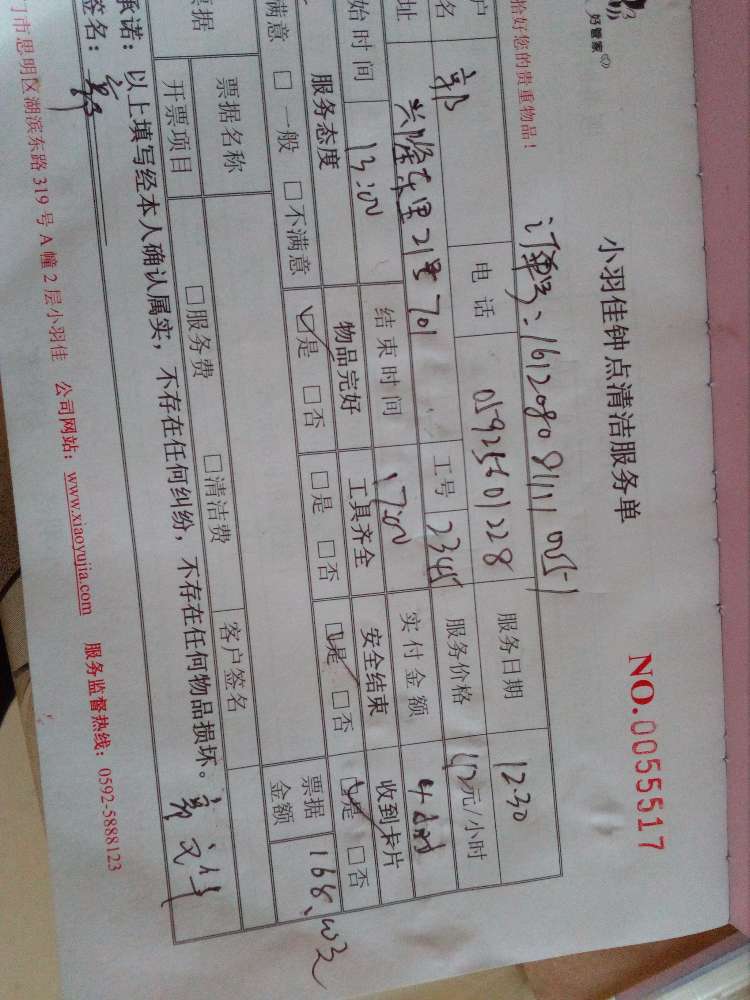 好管家
小羽佳钟点清洁服务单
NO.0055517
恰好您的贵重物品！
订单号：
户 电话 服务日期 12.30
名 郭 工号 2345 服务价格 42元/小时
址 兴隆东里21号701 实付金额
始时间 13:00 结束时间 17:00
服务态度 物品完好 工具齐全 安全结束 收到卡片
满意 □一般 □不满意 ☑是 □否 □是 □否 ☑是 □否 ☑是 □否
票据 票据名称 票据金额 168.00元
开票项目 □服务费 □清洁费 客户签名
承诺：以上填写经本人确认属实，不存在任何纠纷，不存在任何物品损坏。
签名：郭
门市思明区湖滨东路319号A幢2层小羽佳 公司网站：www.xiaoyujia.com 服务监督热线：0592-5888123